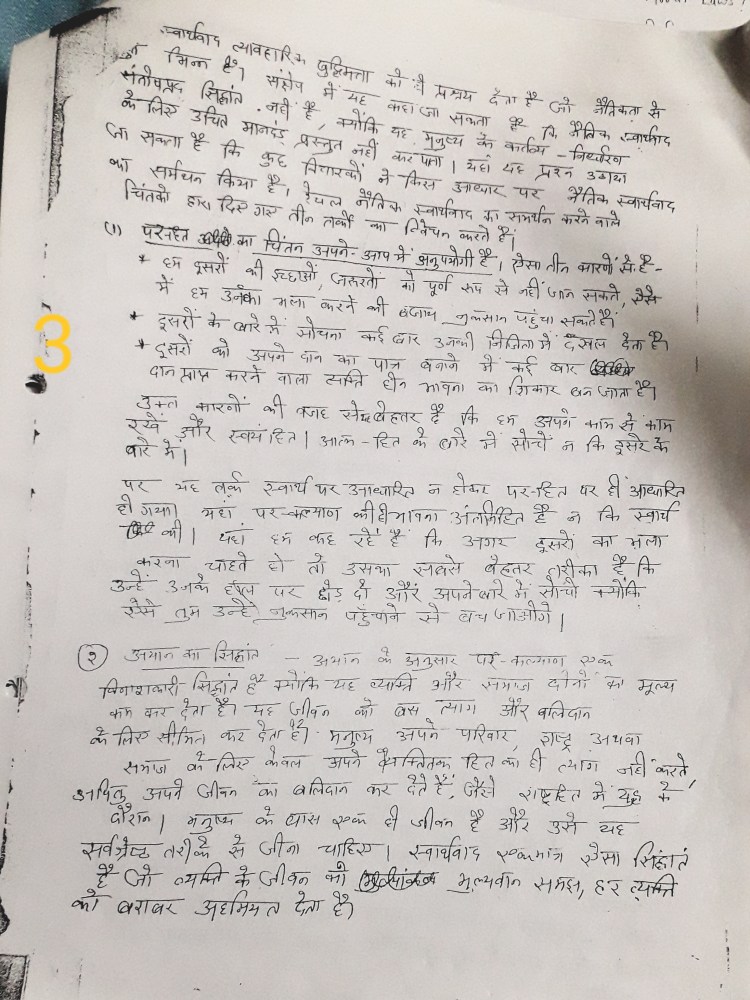 स्वार्थवाद व्यावहारिक बुद्धिमत्ता को ही प्रश्रय देता है जो नैतिकता से
भिन्न है। संक्षेप में यह कहा जा सकता है कि नैतिक स्वार्थवाद
संतोषप्रद सिद्धांत नहीं है, क्योंकि यह मनुष्य के कर्तव्य - निर्धारण
के लिए उचित मानदंड प्रस्तुत नहीं कर पाता। यहां यह प्रश्न उठाया
जा सकता है कि कुछ विचारकों ने किस आधार पर नैतिक स्वार्थवाद
का समर्थन किया है। रेचल नैतिक स्वार्थवाद का समर्थन करने वाले
चिंतको द्वारा दिए गए तीन तर्कों का विवेचन करते हैं।
(1) परहित का चिंतन अपने-आप में अनुपयोगी है। ऐसा तीन कारणों से है-
* हम दूसरों की इच्छाओं, जरूरतों को पूर्ण रूप से नहीं जान सकते, ऐसे
में हम उनका भला करने की बजाय नुकसान पहुंचा सकते हैं।
* दूसरों के बारे में सोचना कई बार उनकी निजिता में दखल देता है।
* दूसरों को अपने दान का पात्र बनाने में कई बार
दान प्राप्त करने वाला व्यक्ति हीन भावना का शिकार बन जाता है।
उक्त कारणों की वजह से बेहतर है कि हम अपने काम से काम
रखें और स्वयं हित। आत्म-हित के बारे में सोचें न कि दूसरे के
बारे में।
पर यह तर्क स्वार्थ पर आधारित न होकर पर-हित पर ही आधारित
हो गया। यहां पर-कल्याण की ही भावना अंतर्निहित है न कि स्वार्थ
की। यहां हम कह रहे हैं कि अगर दूसरों का भला
करना चाहते हो तो उसका सबसे बेहतर तरीका है कि
उन्हें उनके हाल पर छोड़ दो और अपने बारे में सोचो क्योंकि
ऐसे तुम उन्हें नुकसान पहुँचाने से बच जाओगे।
(२) अयान का सिद्धांत - अयान के अनुसार पर-कल्याण एक
विनाशकारी सिद्धांत है क्योंकि यह व्यक्ति और समाज दोनों का मूल्य
कम कर देता है। यह जीवन को बस त्याग और बलिदान
के लिए सीमित कर देता है। मनुष्य अपने परिवार, राष्ट्र अथवा
समाज के लिए केवल अपने हित का ही त्याग नहीं करते,
अपितु अपने जीवन का बलिदान कर देते हैं, जैसे राष्ट्रहित में युद्ध के
दौरान। मनुष्य के पास एक ही जीवन है और उसे यह
सर्वश्रेष्ठ तरीके से जीना चाहिए। स्वार्थवाद एकमात्र ऐसा सिद्धांत
है जो व्यक्ति के जीवन को मूल्यवान समझ, हर व्यक्ति
को बराबर अहमियत देता है।
3